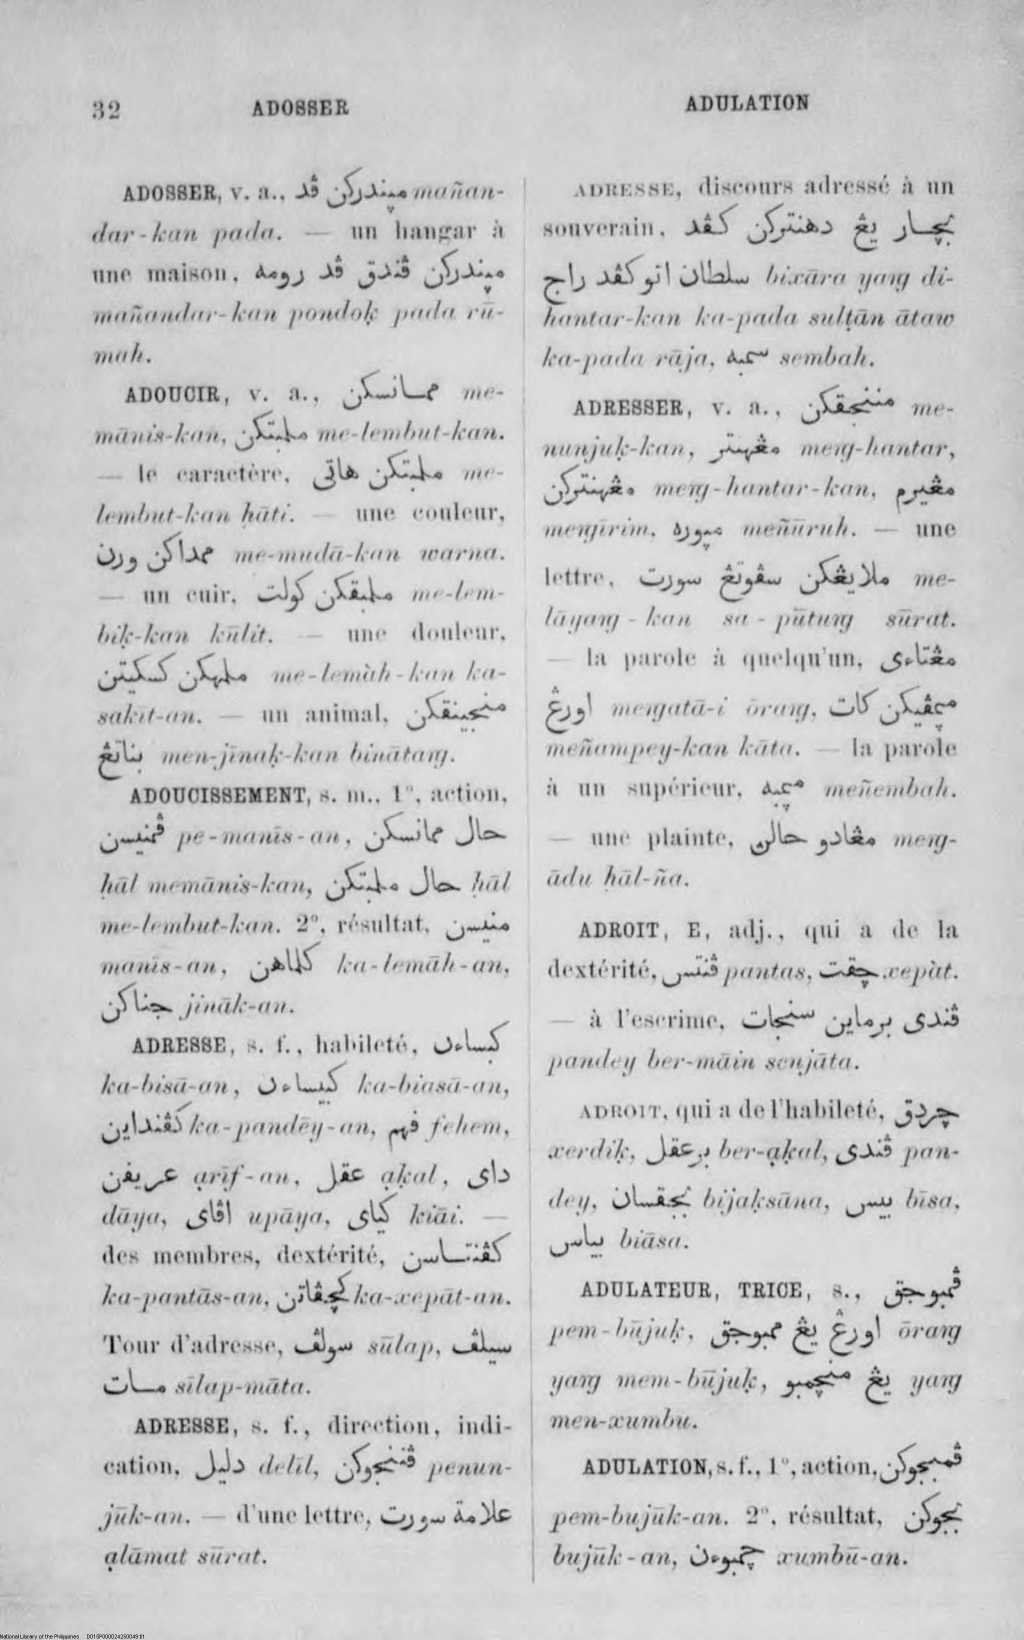 32
ADOSSER
ADULATION
ADOSSER, v. a., مپندركن ڤد mañan-
dar-kan pada. — un hangar à
une maison, مپندركن ڤندق ڤد رومه
mañandar-kan pondoḳ pada rū-
mah.
ADOUCIR, v. a., ممانسكن me-
mānis-kan, ملمبتكن me-lembut-kan.
— le caractère, ملمبتكن هاتي me-
lembut-kan hāti. — une couleur,
ممداكن ورن me-mudā-kan warna.
— un cuir, ملمبقكن كولت me-lem-
biḳ-kan kūlit. — une douleur,
ملمهكن كسكيتن me-lemàh-kan ka-
sakīt-an. — un animal, منجينقكن
بناتڠ men-jīnaḳ-kan binātaŋ.
ADOUCISSEMENT, s. m., 1°, action,
ڤمنيسن pe-manīs-an, حال ممانسكن
ḥāl memānis-kan, حال ملمبتكن ḥāl
me-lembut-kan. 2°, résultat, منيسن
manīs-an, كلماهن ka-lemāh-an,
جناكن jināk-an.
ADRESSE, s. f., habileté, كبساءن
ka-bisā-an, كبيساءن ka-biasā-an,
كڤنداين ka-pandēy-an, فهم fehem,
عريفن ạrīf-an, عقل ạḳal, داي
dāya, اڤاي upāya, كياي kiāi. —
des membres, dextérité, كڤنتاسن
ka-pantās-an, كچڤاتن ka-xepāt-an.
Tour d'adresse, سولڤ sūlap, سيلڤ
مات sīlap-māta.
ADRESSE, s. f., direction, indi-
cation, دليل delīl, ڤننجوكن penun-
jūk-an. — d'une lettre, علامة سورت
ạlāmat sūrat.
ADRESSE, discours adressé à un
souverain, بچار يڠ دهنتركن كڤد
سلطان اتو كڤد راج bixāra yaŋ di-
hantar-kan ka-pada sulṭān ātaw
ka-pada rāja, سمبه sembah.
ADRESSER, v. a., مننجقكن me-
nunjuḳ-kan, مڠهنتر meŋ-hantar,
مڠهنتركن meŋ-hantar-kan, مڠيرم
meŋīrim, مپوره meñūruh. — une
lettre, ملايڠكن سڤوتڠ سورت me-
lāyaŋ-kan sa-pūtuŋ sūrat.
— la parole à quelqu'un, مڠتاءي
اورڠ meŋatā-i ōraŋ, مپمڤيكن كات
meñampey-kan kāta. — la parole
à un supérieur, مپمبه meñembah.
— une plainte, مڠادو حالڽ meŋ-
ādu ḥāl-ña.
ADROIT, E, adj., qui a de la
dextérité, ڤنتس pantas, چڤت xepàt.
— à l'escrime, ڤندي برماين سنجات
pandey ber-māin senjāta.
ADROIT, qui a de l'habileté, چردق
xerdiḳ, برعقل ber-ạḳal, ڤندي pan-
dey, بجقسان bijaḳsāna, بيس bīsa,
بياس biāsa.
ADULATEUR, TRICE, s., ڤمبوجق
pem-būjuḳ, اورڠ يڠ ممبوجق ōraŋ
yaŋ mem-būjuḳ, يڠ منچمبو yaŋ
men-xumbu.
ADULATION, s. f., 1°, action, ڤمبجوكن
pem-bujūk-an. 2°, résultat, بجوكن
bujūk-an, چمبوءن xumbū-an.
National Library of the Philippines